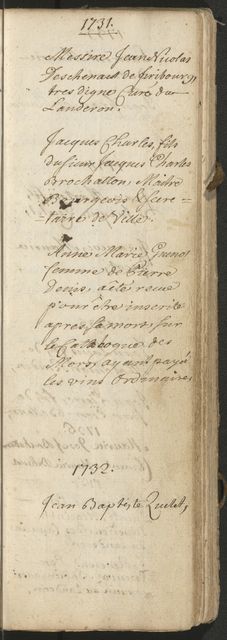 1731.
Messire Jean Nicolas
Deschenaux de fribourg,
tres digne Curé du
Landeron.
Jacques Charles, fils
du sieur Jacques Charles
Brochatton, Maître
Bourgeois & Secre-
taire de Ville.
Anne Marie
femme de Pierre
a été recue
pour être inscrite
apres sa mort, sur
le Cathalogue des
Mors, ayant payé
les vins Ordinaires
1732.
Jean Baptiste Quelet,